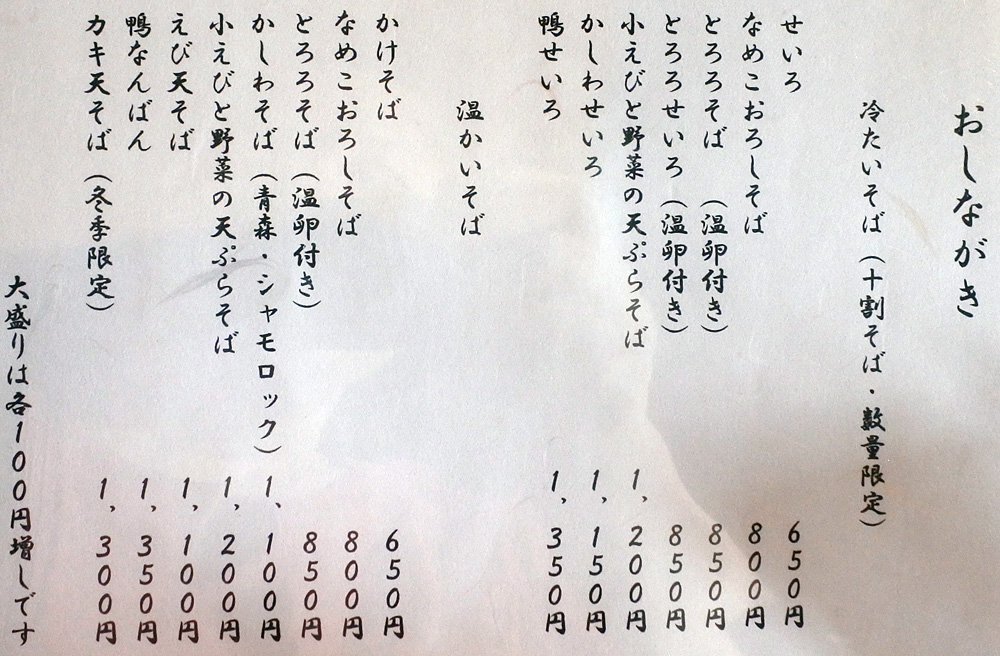 おしながき
冷たいそば（十割そば・数量限定）
せいろ 650円
なめこおろしそば 800円
とろろそば（温卵付き） 850円
とろろせいろ（温卵付き） 850円
小えびと野菜の天ぷらそば 1,200円
かしわせいろ 1,150円
鴨せいろ 1,350円
温かいそば
かけそば 650円
なめこおろしそば 800円
とろろそば（温卵付き） 850円
かしわそば（青森・シャモロック） 1、100円
小えびと野菜の天ぷらそば 1,200円
えび天そば 1,100円
鴨なんばん 1,350円
カキ天そば（冬季限定） 1,300円
大盛りは各100円増しです